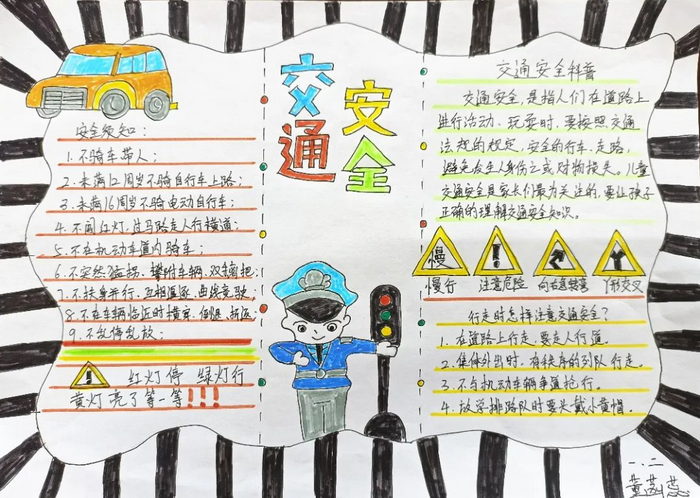 交通
安全
安全须知：
1.不骑车带人；
2.未满12周岁不骑自行车上路；
3.未满16周岁不骑电动自行车；
4.不闯红灯，过马路走人行横道；
5.不在机动车道内骑车；
6.不突然猛拐、攀附车辆、双手离把；
7.不扶身并行、互相追逐、曲线竞驶；
8.不在车辆临近时横穿、
9.不乱停乱放；
红灯停 绿灯行
黄灯亮了等一等!!!
交通安全科普
交通安全，是指人们在道路上
进行活动、玩耍时，要按照交通
法规的规定，安全的行车、走路，
避免发生人身伤亡或财物损失。儿童
交通安全是家长们最为关注的，要让孩子
正确的理解交通安全知识。
慢
慢行
注意危险
向右急转弯
Y形交叉
行走时怎样注意交通安全？
1.在道路上行走，要走人行道。
2.集体外出时，有秩序的列队行走。
3.不与机动车辆争道抢行。
4.放学排路队时要头戴小黄帽。
一.二